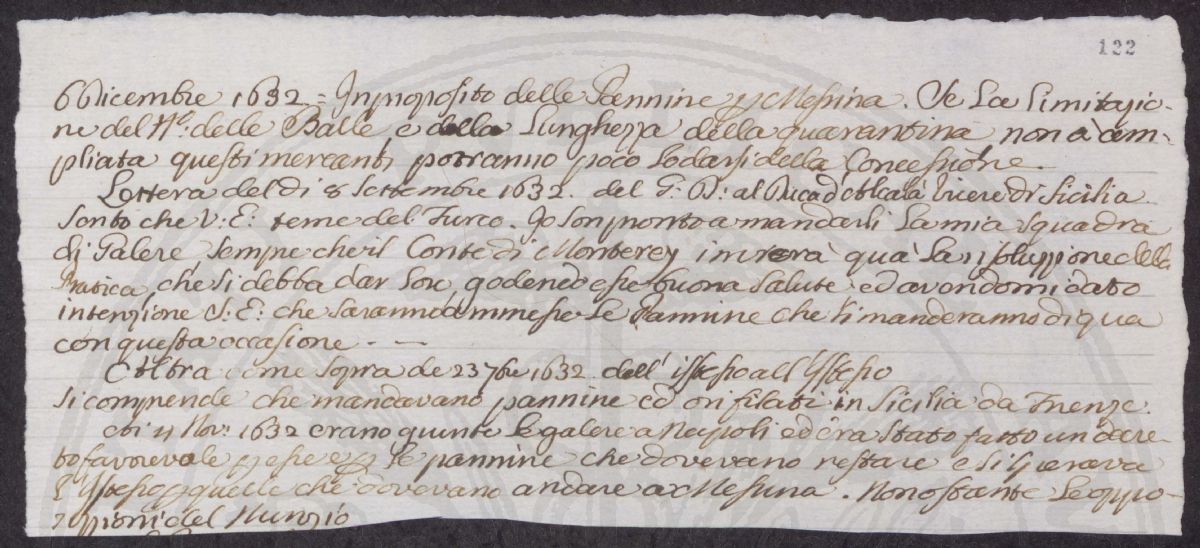 122
6 Dicembre 1632 = In proposito delle Pannine p Messina. Se La Limitazio-
ne del N.º delle Balle e della Lunghezza della quarantina non è am-
pliata questi mercanti potranno poco Lodarsi della Concessione
Lettera del dì 8 Settembre 1632. del G. D: al Duca d'Alcalà Vicere di Sicilia
Sento che V: E: teme del Turco. Io son pronto a mandarli La mia Squadra
di Galere Sempre che il Conte di Monterey invierà quà La risoluzione della
Pratica, che si debba dar Loro, godendo esse buona Salute ed avendomi dato
intenzione S: E: che saranno ammesse Le Pannine che si manderanno di qua
con questa occasione . —
Altra come sopra de 23 7bre 1632. dell' istesso all' istesso
Si comprende che mandavano pannine ed ori filati in Sicilia da Firenze.
Nov: 1632 erano giunte Le galere a Napoli ed era Stato fatto un decre-
to favorevole p esse e p Le pannine che dovevano restare e si sperava
L'istesso p quelle che dovevano andare a Messina. Non ostante Le oppo-
sizioni del Nunzio